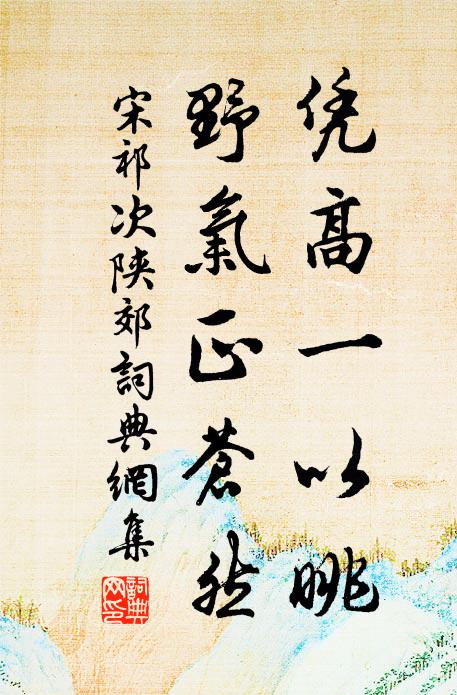 凭高一以眺
野氣正蒼然
宋祁次陝郊詞典網集
詞典